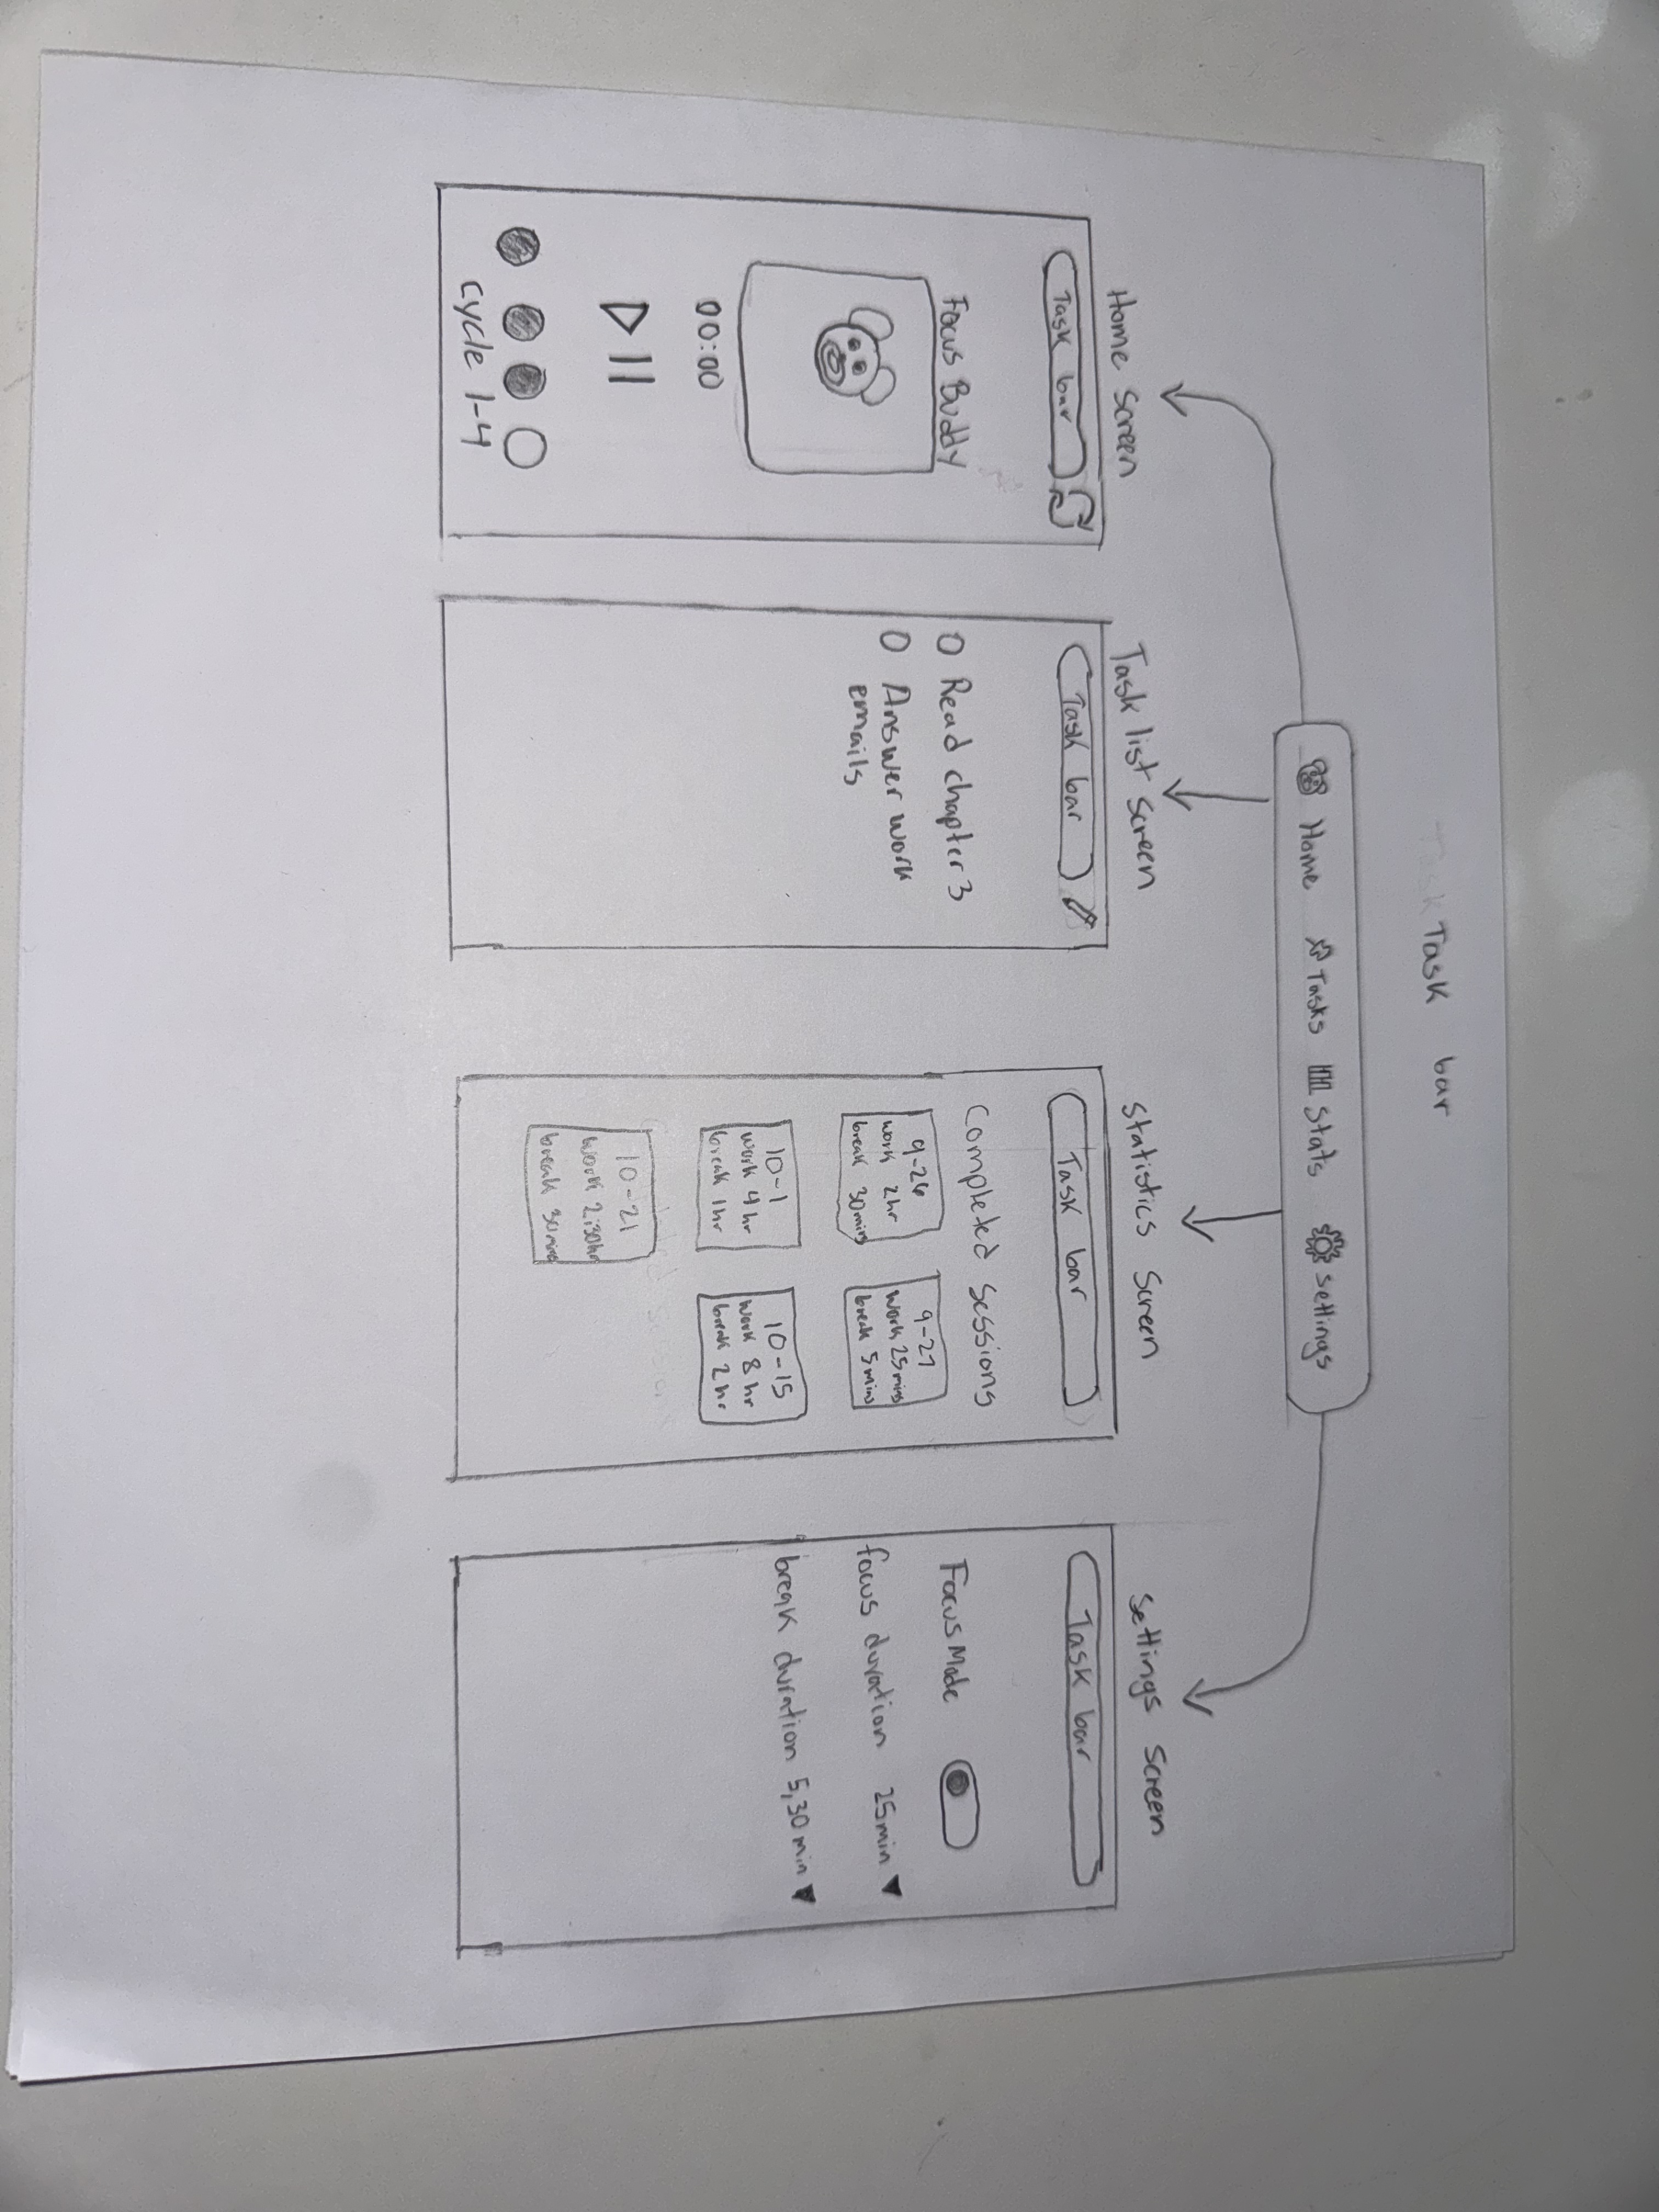 Task bar
Home Tasks Stats Settings
Home Screen
Task bar
Focus Buddy
00:00
Cycle 1-4
Task list Screen
Task bar
Read chapter 3
Answer work
emails
Statistics Screen
Task bar
Completed Sessions
9-26
work 2hr
break 30mins
9-27
work 25mins
break 5mins
10-1
work 4hr
break 1hr
10-15
work 8hr
break 2hr
10-21
work 2:30hr
break 30mins
Settings Screen
Task bar
Focus Mode
focus duration 25min ▼
break duration 5,30 min ▼